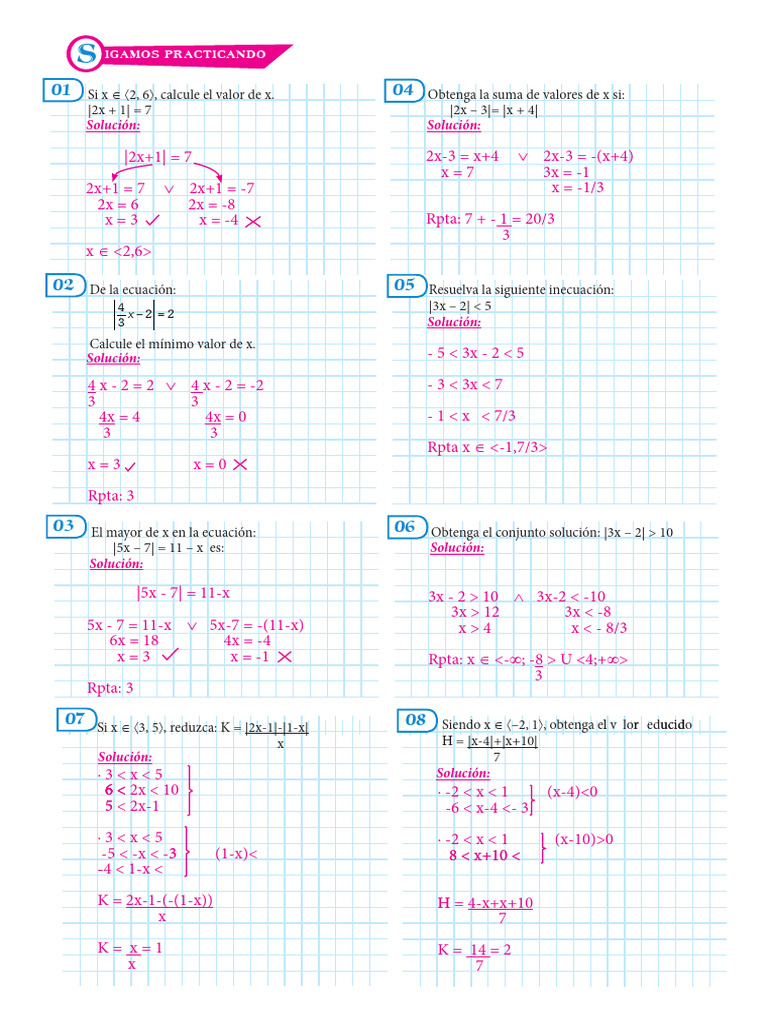 SIGAMOS PRACTICANDO
01
Si x ∈ ⟨2, 6⟩, calcule el valor de x.
|2x + 1| = 7
Solución:
|2x+1| = 7
2x+1 = 7 ∨ 2x+1 = -7
2x = 6 2x = -8
x = 3 ✓ x = -4 ✗
x ∈ <2,6>
02
De la ecuación:
|4/3 x − 2| = 2
Calcule el mínimo valor de x.
Solución:
4/3 x - 2 = 2 ∨ 4/3 x - 2 = -2
4x/3 = 4 4x/3 = 0
x = 3 ✓ x = 0 ✗
Rpta: 3
03
El mayor de x en la ecuación:
|5x – 7| = 11 – x es:
Solución:
|5x - 7| = 11-x
5x - 7 = 11-x ∨ 5x-7 = -(11-x)
6x = 18 4x = -4
x = 3 ✓ x = -1 ✗
Rpta: 3
07
Si x ∈ ⟨3, 5⟩, reduzca: K = |2x-1|-|1-x|
x
Solución:
· 3 < x < 5
6 < 2x < 10
5 < 2x-1
· 3 < x < 5
-5 < -x < -3 (1-x)<
-4 < 1-x <
K = 2x-1-(-(1-x))
x
K = x = 1
x
04
Obtenga la suma de valores de x si:
|2x – 3|= |x + 4|
Solución:
2x-3 = x+4 ∨ 2x-3 = -(x+4)
x = 7 3x = -1
x = -1/3
Rpta: 7 + - 1 = 20/3
3
05
Resuelva la siguiente inecuación:
|3x – 2| < 5
Solución:
- 5 < 3x - 2 < 5
- 3 < 3x < 7
- 1 < x < 7/3
Rpta x ∈ <-1,7/3>
06
Obtenga el conjunto solución: |3x – 2| > 10
Solución:
3x - 2 > 10 ∧ 3x-2 < -10
3x > 12 3x < -8
x > 4 x < - 8/3
Rpta: x ∈ <-∞; -8 > U <4;+∞>
3
08
Siendo x ∈ ⟨–2, 1⟩, obtenga el v lor educido
H = |x-4|+|x+10|
7
Solución:
· -2 < x < 1 (x-4)<0
-6 < x-4 <- 3
· -2 < x < 1 (x-10)>0
8 < x+10 <
H = 4-x+x+10
7
K = 14 = 2
7